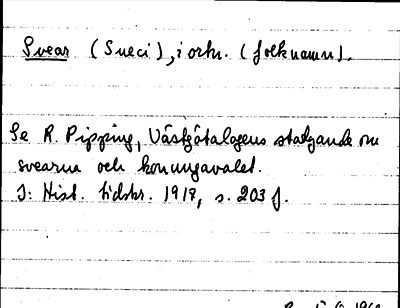 Svear (Sueci), i ortn. (folknamn).
Se R. Pipping, Västgötalagens stadgande om
svearna och konungavalet.
I: Hist. tidskr. 1917, s. 203 f.